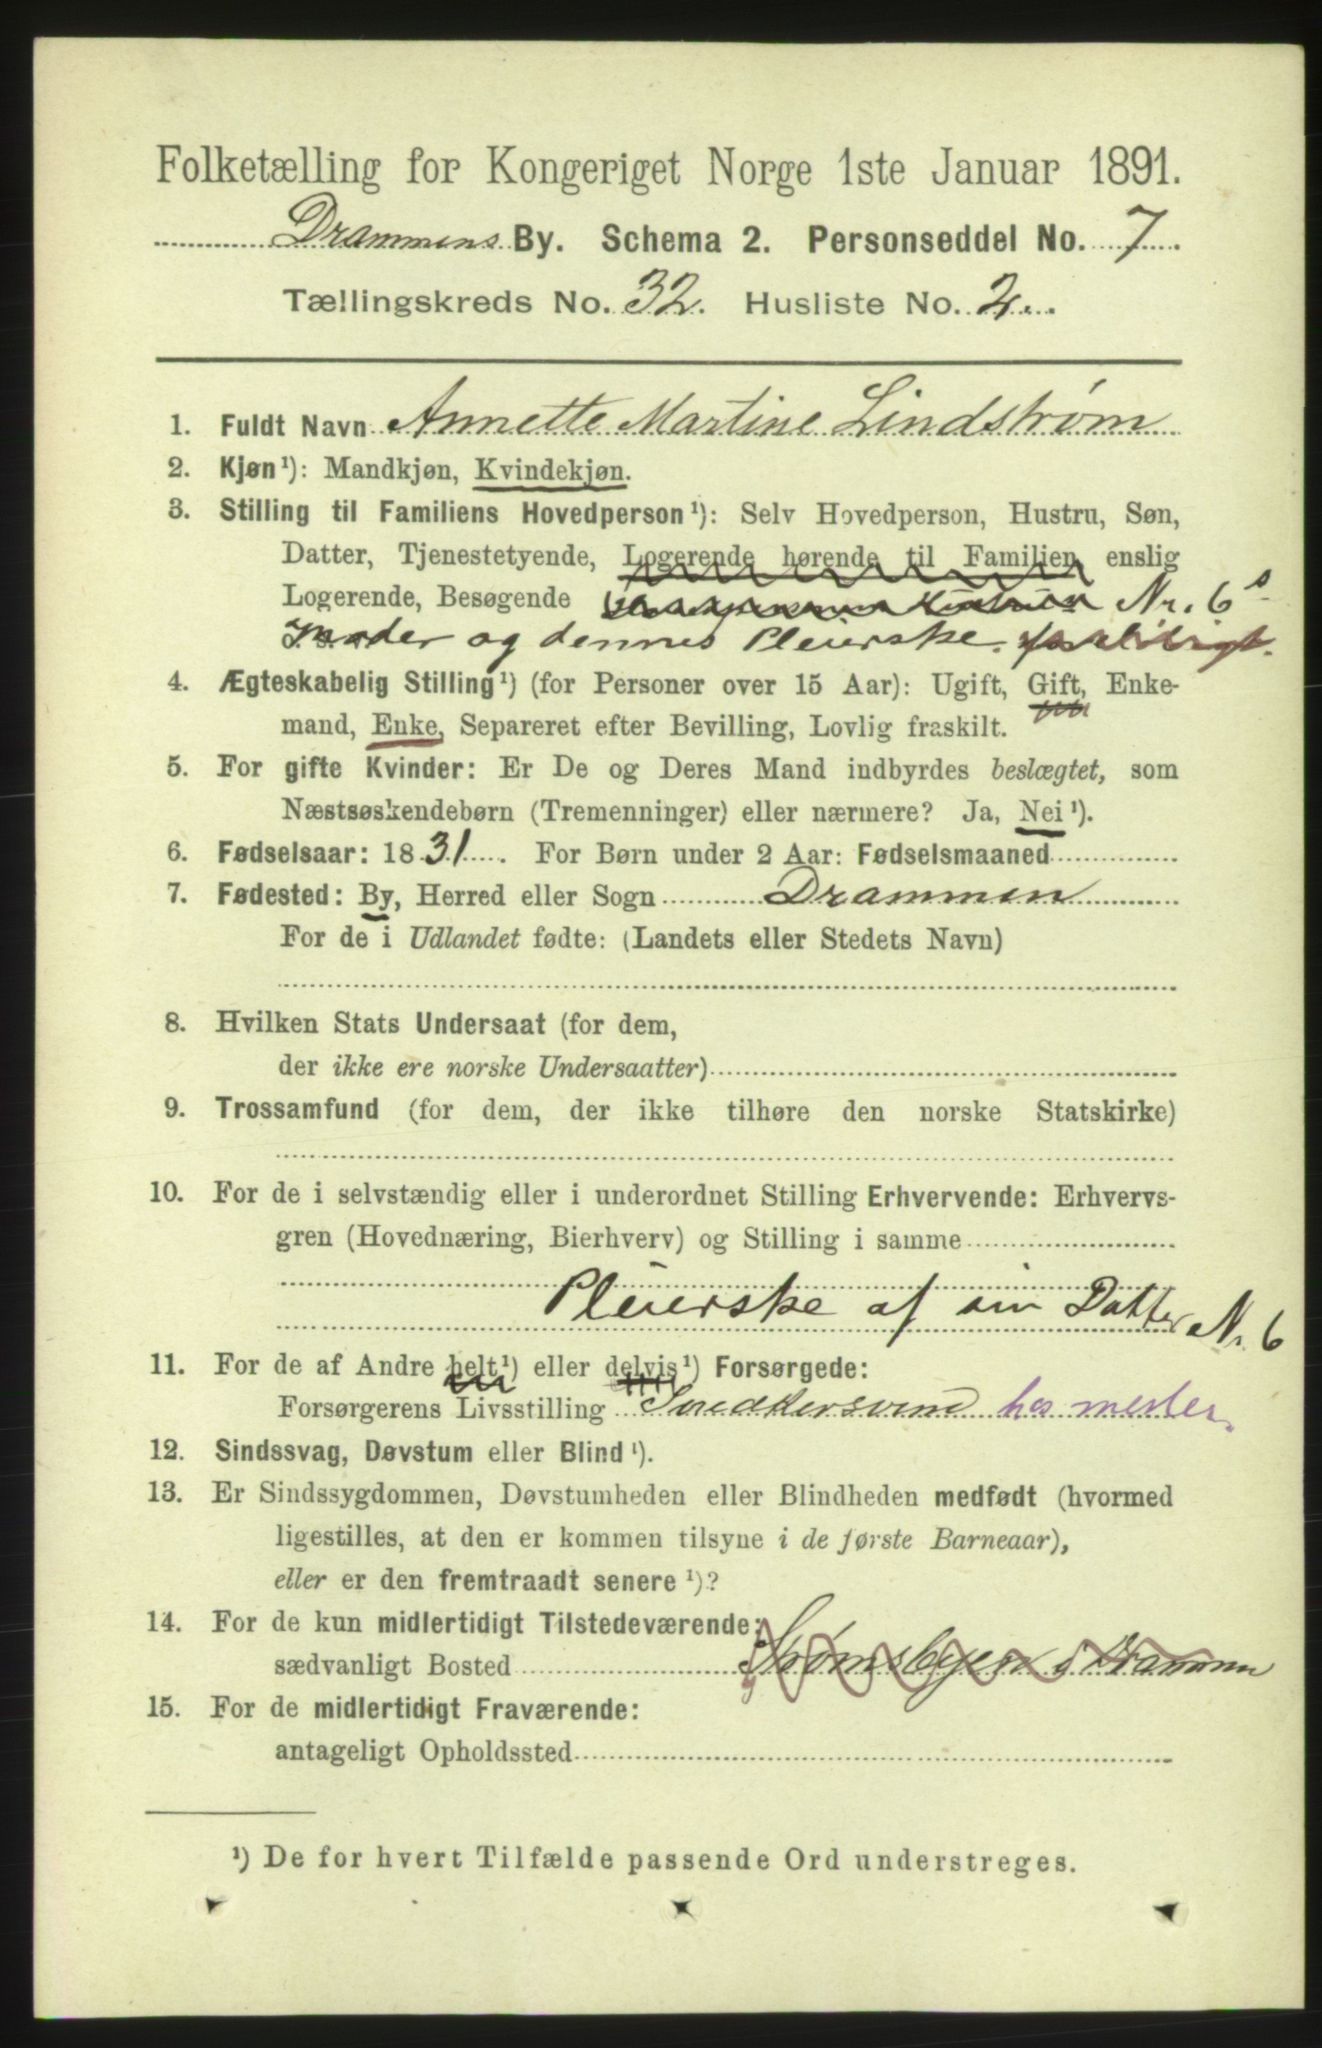 Folketælling for Kongeriget Norge 1ste Januar 1891.
Drammens By. Schema 2. Personseddel No. 7.
Tællingskreds No. 32. Husliste No. 2.
1. Fuldt Navn Annette Martine Lindstrøm
2. Kjøn¹): Mandkjøn, Kvindekjøn.
3. Stilling til Familiens Hovedperson¹): Selv Hovedperson, Hustru, Søn,
Datter, Tjenestetyende, Logerende hørende til Familien, enslig
Logerende, Besøgende Nr. 6s
Moder og dennes Pleierske.
4. Ægteskabelig Stilling¹) (for Personer over 15 Aar): Ugift, Gift, Enke-
mand, Enke, Separeret efter Bevilling, Lovlig fraskilt.
5. For gifte Kvinder: Er De og Deres Mand indbyrdes beslægtet, som
Næstsøskendebørn (Tremenninger) eller nærmere? Ja, Nei¹).
6. Fødselsaar: 1831. For Børn under 2 Aar: Fødselsmaaned
7. Fødested: By, Herred eller Sogn Drammen
For de i Udlandet fødte: (Landets eller Stedets Navn)
8. Hvilken Stats Undersaat (for dem,
der ikke ere norske Undersaatter)
9. Trossamfund (for dem, der ikke tilhøre den norske Statskirke)
10. For de i selvstændig eller i underordnet Stilling Erhvervende: Erhvervs-
gren (Hovednæring, Bierhverv) og Stilling i samme
Pleierske af sin Datter Nr. 6
11. For de af Andre helt¹) eller delvis¹) Forsørgede:
Forsørgerens Livsstilling Snedkersvend hos mester.
12. Sindssvag, Døvstum eller Blind¹).
13. Er Sindssygdommen, Døvstumheden eller Blindheden medfødt (hvormed
ligestilles, at den er kommen tilsyne i de første Barneaar),
eller er den fremtraadt senere¹)?
14. For de kun midlertidigt Tilstedeværende:
sædvanligt Bosted Strømsbyen i Drammen
15. For de midlertidigt Fraværende:
antageligt Opholdssted
¹) De for hvert Tilfælde passende Ord understreges.